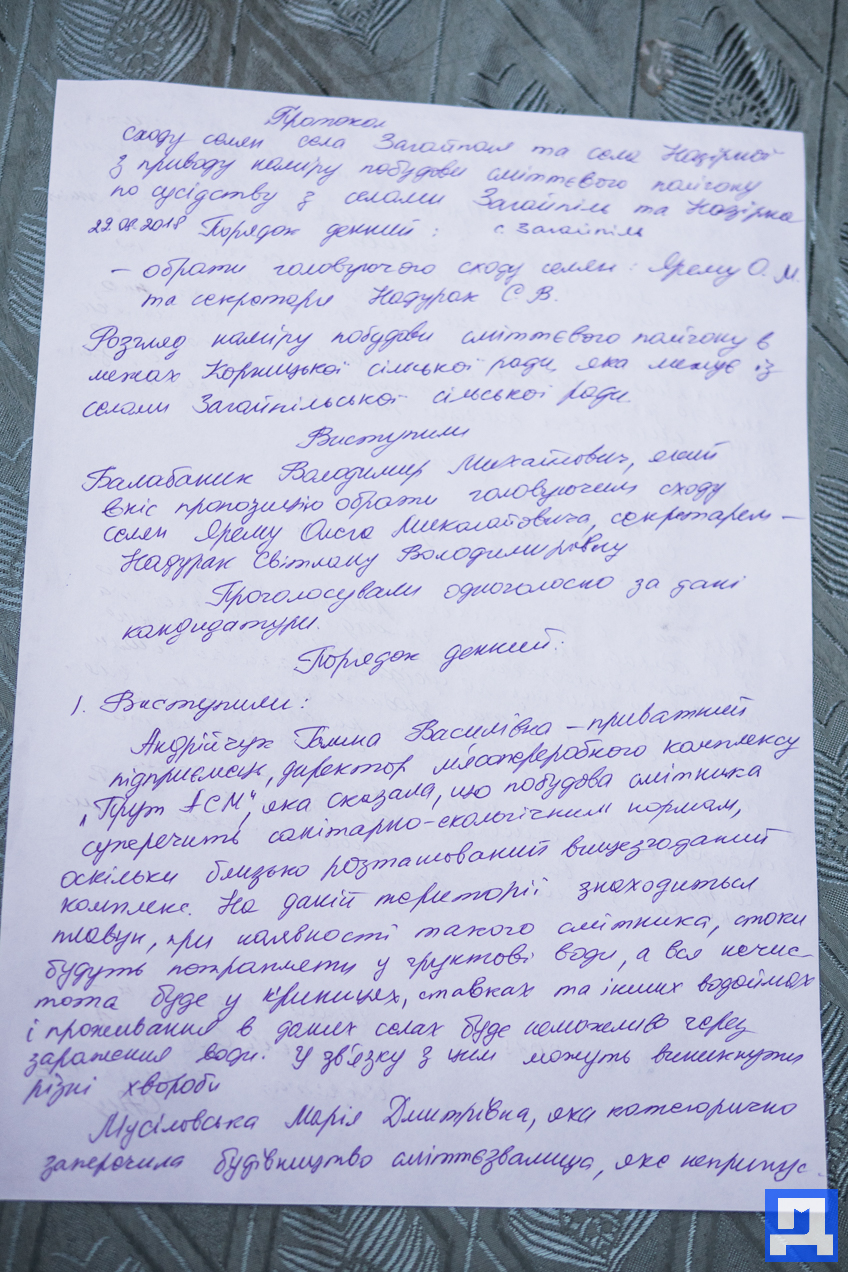 Протокол
сходу селян села Загайполя та села Назірної
з приводу наміру побудови сміттєвого полігону
по сусідству з селами Загайпіль та Назірна
22.08.2018 Порядок денний: с. Загайпіль
– обрати головуючого сходу селян: Ярему О. М.
та секретаря Надурак С. В.
Розгляд наміру побудови сміттєвого полігону в
межах Корницької сільської ради, яка межує із
селами Загайпільської сільської ради.
Виступили
Балабаник Володимир Михайлович, який
вніс пропозицію обрати головуючим сходу
селян Ярему Олега Миколайовича, секретарем –
Надурак Світлану Володимирівну
Проголосували одноголосно за дані
кандидатури.
Порядок денний:
1. Виступили:
Андрійчук Галина Василівна – приватний
підприємець, директор м'ясопереробного комплексу
„Прут АСМ", яка сказала, що побудова смітника
суперечить санітарно-екологічним нормам,
оскільки близько розташований вищезгаданий
комплекс. На даній території знаходиться
плавун, при наявності такого смітника, стоки
будуть потрапляти у грунтові води, а вся нечис-
тота буде у криницях, ставках та інших водоймах
і проживання в даних селах буде неможливо через
зараження води. У зв'язку з цим можуть виникнути
різні хвороби
Мусіловська Марія Дмитрівна, яка категорично
заперечила будівництво сміттєзвалища, яке неприпус-